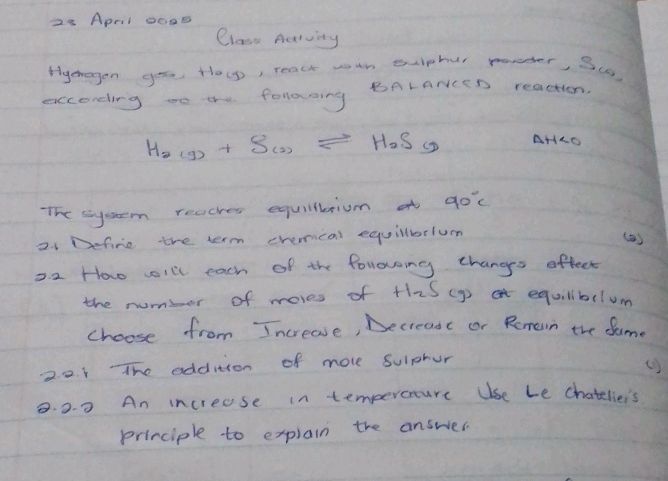 23 April 2025
Class Activity
Hydrogen gas, H2(g), react with sulphur powder, S(s),
according to the following BALANCED reaction.
H2 (g) + S(s) ⇌ H2S (g) ΔH<0
The system reaches equilibrium at 90°C
2.1 Define the term chemical equilibrium (2)
2.2 How will each of the following changes affect
the number of moles of H2S (g) at equilibrium
choose from Increase, Decrease or Remain the Same
2.2.1 The addition of more Sulphur (1)
2.2.2 An increase in temperature Use Le Chatelier's
principle to explain the answer